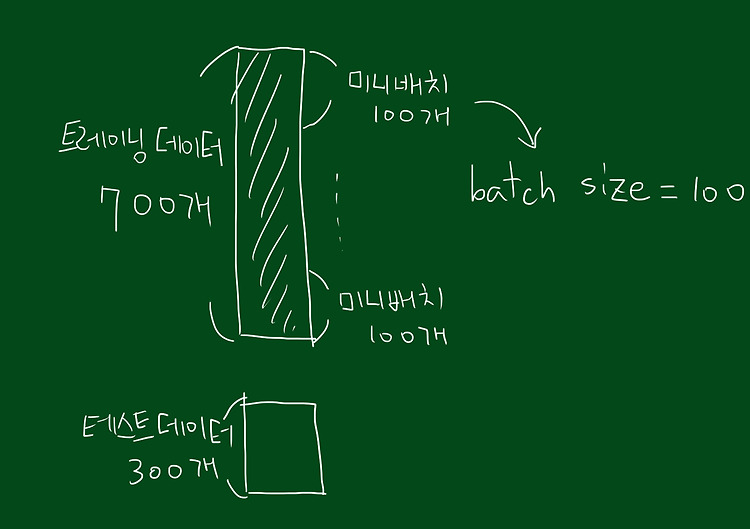 트레이닝 데이터
700개
미니배치
100개
batch size = 100
미니배치
100개
테스트 데이터
300개